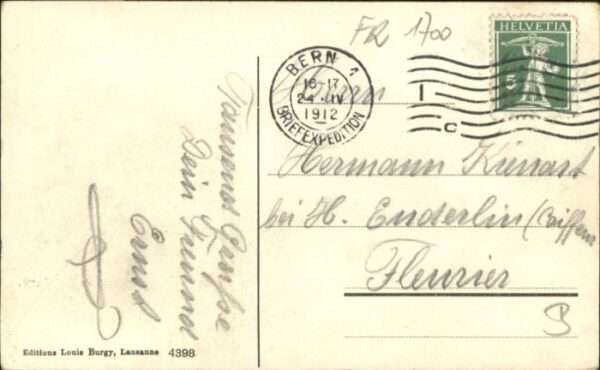 Tausend Grüsse
Dein Freund
Ernst
Editions Louis Burgy, Lausanne 4398
FR 1700
HELVETIA
5
BERN 1
16-17
24 IV
1912
BRIEFEXPEDITION
Herrn
Hermann Kienast
bei H. Enderlin Coiffeur
Fleurier